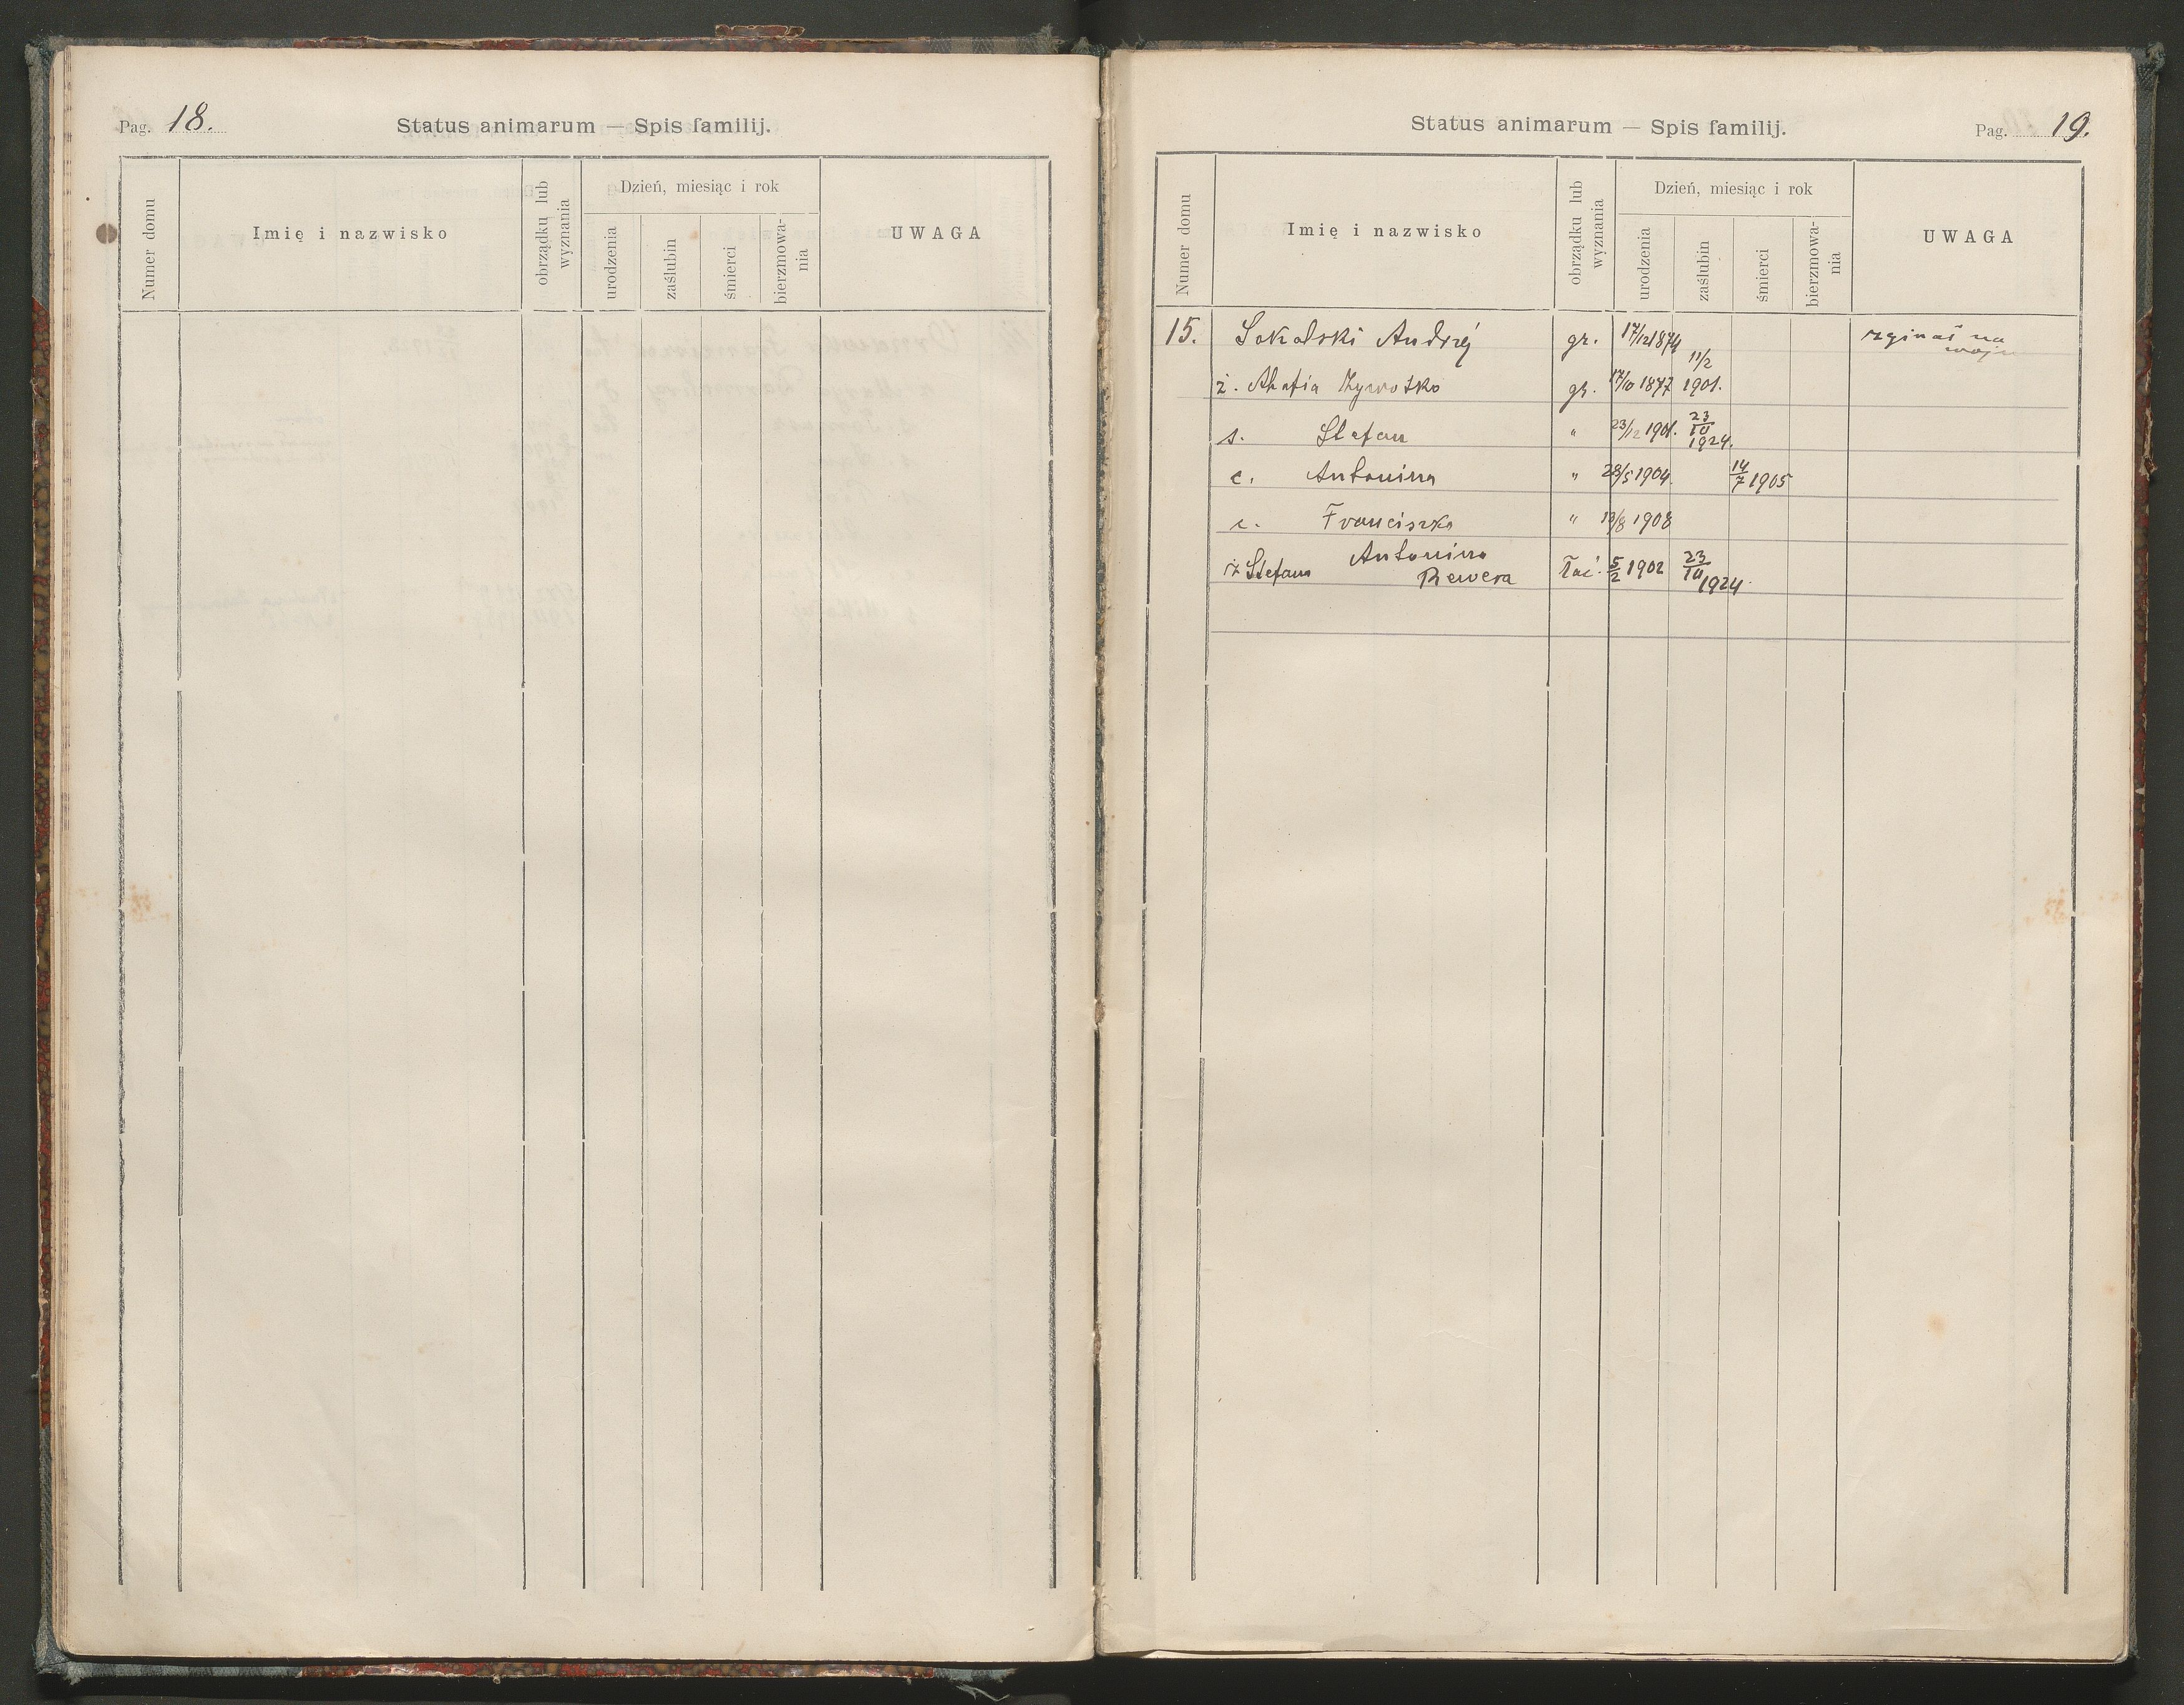 Pag. 18.
Status animarum — Spis familij.
Numer domu
Imię i nazwisko
obrządku lub wyznania
Dzień, miesiąc i rok
urodzenia
zaślubin
śmierci
bierzmowa-
nia
UWAGA
Status animarum — Spis familij.
Pag. 19.
Numer domu
Imię i nazwisko
obrządku lub wyznania
Dzień, miesiąc i rok
urodzenia
zaślubin
śmierci
bierzmowa-
nia
UWAGA
15. Sokalski Andrzej gr. 17/12 1874 zginął na
wojn
ż. Ahafia gr. 17/10 1877 11/2 1901.
s. Stefan " 23/12 1901. 23/10 1924.
c. Antonina " 28/5 1904. 14/7 1905
c. Franciszka " 13/8 1908
ż Stefana Antonina Rewera łać. 5/2 1902 23/10 1924.